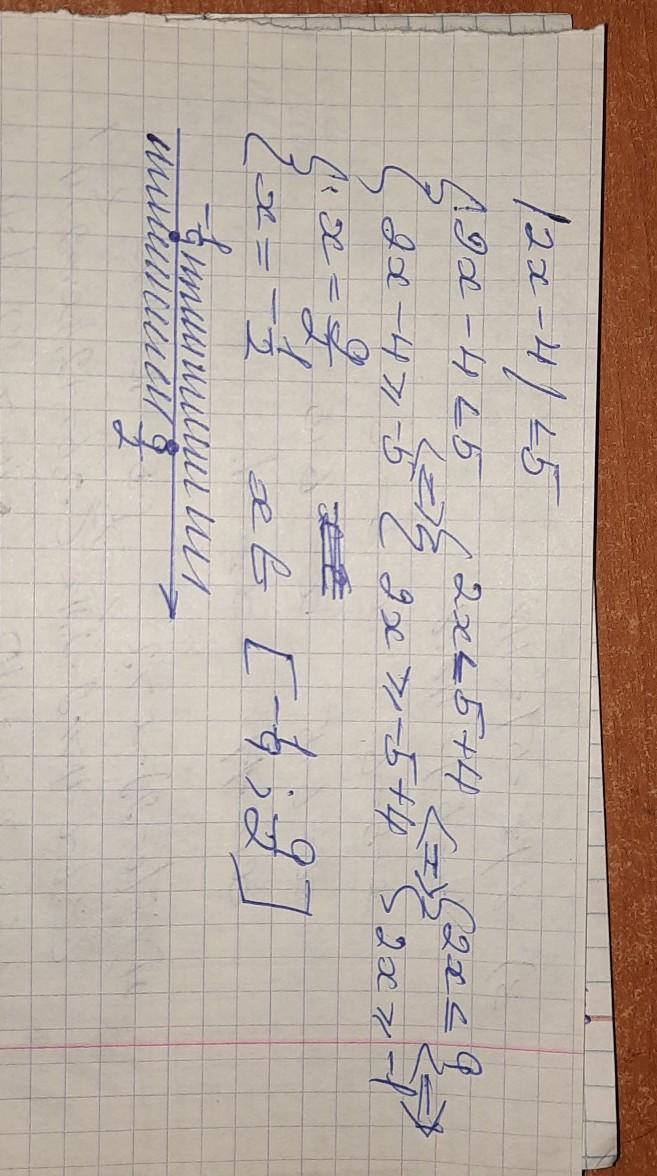 |2x-4| ≤ 5
{ 2x-4 ≤ 5 <=> { 2x ≤ 5+4 <=> { 2x ≤ 9 <=>
{ 2x-4 ≥ -5 { 2x ≥ -5+4 { 2x ≥ -1
{ x = 9/2
{ x = -1/2 x ∈ [-1/2; 9/2]
-1/2 9/2